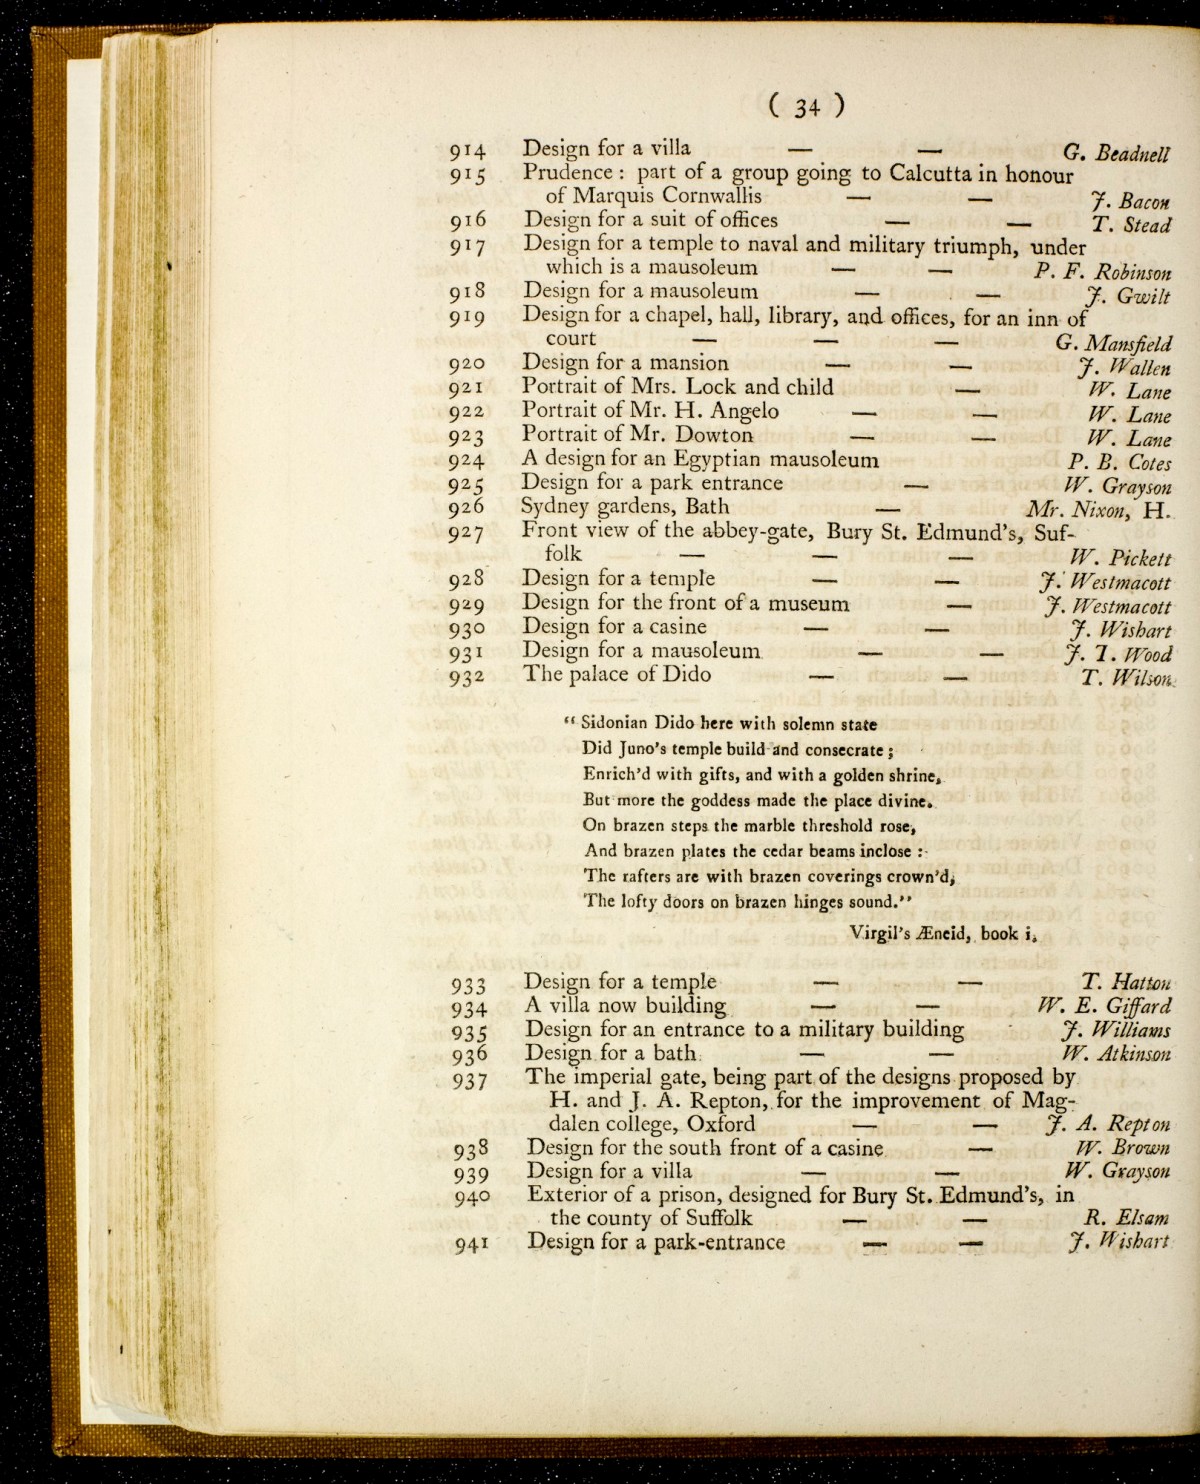 ( 34 )
914 Design for a villa — — G. Beadnell
915 Prudence : part of a group going to Calcutta in honour
of Marquis Cornwallis — — J. Bacon
916 Design for a suit of offices — — T. Stead
917 Design for a temple to naval and military triumph, under
which is a mausoleum — — P. F. Robinson
918 Design for a mausoleum — — J. Gwilt
919 Design for a chapel, hall, library, and offices, for an inn of
court — — — G. Mansfield
920 Design for a mansion — — J. Wallen
921 Portrait of Mrs. Lock and child — W. Lane
922 Portrait of Mr. H. Angelo — — W. Lane
923 Portrait of Mr. Dowton — — W. Lane
924 A design for an Egyptian mausoleum P. B. Cotes
925 Design for a park entrance — W. Grayson
926 Sydney gardens, Bath — Mr. Nixon, H.
927 Front view of the abbey-gate, Bury St. Edmund's, Suf-
folk — — — W. Pickett
928 Design for a temple — — J. Westmacott
929 Design for the front of a museum — J. Westmacott
930 Design for a casine — — J. Wishart
931 Design for a mausoleum — — J. I. Wood
932 The palace of Dido — — T. Wilson.
“ Sidonian Dido here with solemn state
Did Juno's temple build and consecrate ;
Enrich'd with gifts, and with a golden shrine,
But more the goddess made the place divine.
On brazen steps the marble threshold rose,
And brazen plates the cedar beams inclose :
The rafters are with brazen coverings crown'd,
The lofty doors on brazen hinges sound.”
Virgil's Æneid, book i.
933 Design for a temple — — T. Hatton
934 A villa now building — — W. E. Giffard
935 Design for an entrance to a military building J. Williams
936 Design for a bath — — W. Atkinson
937 The imperial gate, being part of the designs proposed by
H. and J. A. Repton, for the improvement of Mag-
dalen college, Oxford — — J. A. Repton
938 Design for the south front of a casine — W. Brown
939 Design for a villa — — W. Grayson
940 Exterior of a prison, designed for Bury St. Edmund's, in
the county of Suffolk — — R. Elsam
941 Design for a park-entrance — — J. Wishart